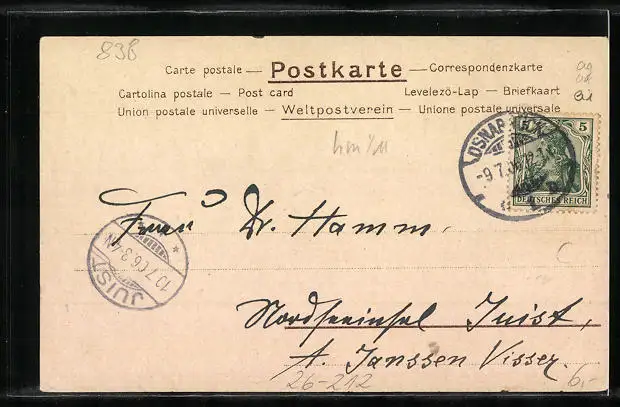 838
Carte postale — Postkarte — Correspondenzkarte
Cartolina postale — Post card Levelező-Lap — Briefkaart
Union postale universelle — Weltpostverein — Unione postale universale
5
DEUTSCHES REICH
OSNABRÜCK
Frau Dr. Hamm,
JUIST
10.7.06.3-4N
Nordseeinsel Juist,
A. Janssen Visser.
26-212
6,-